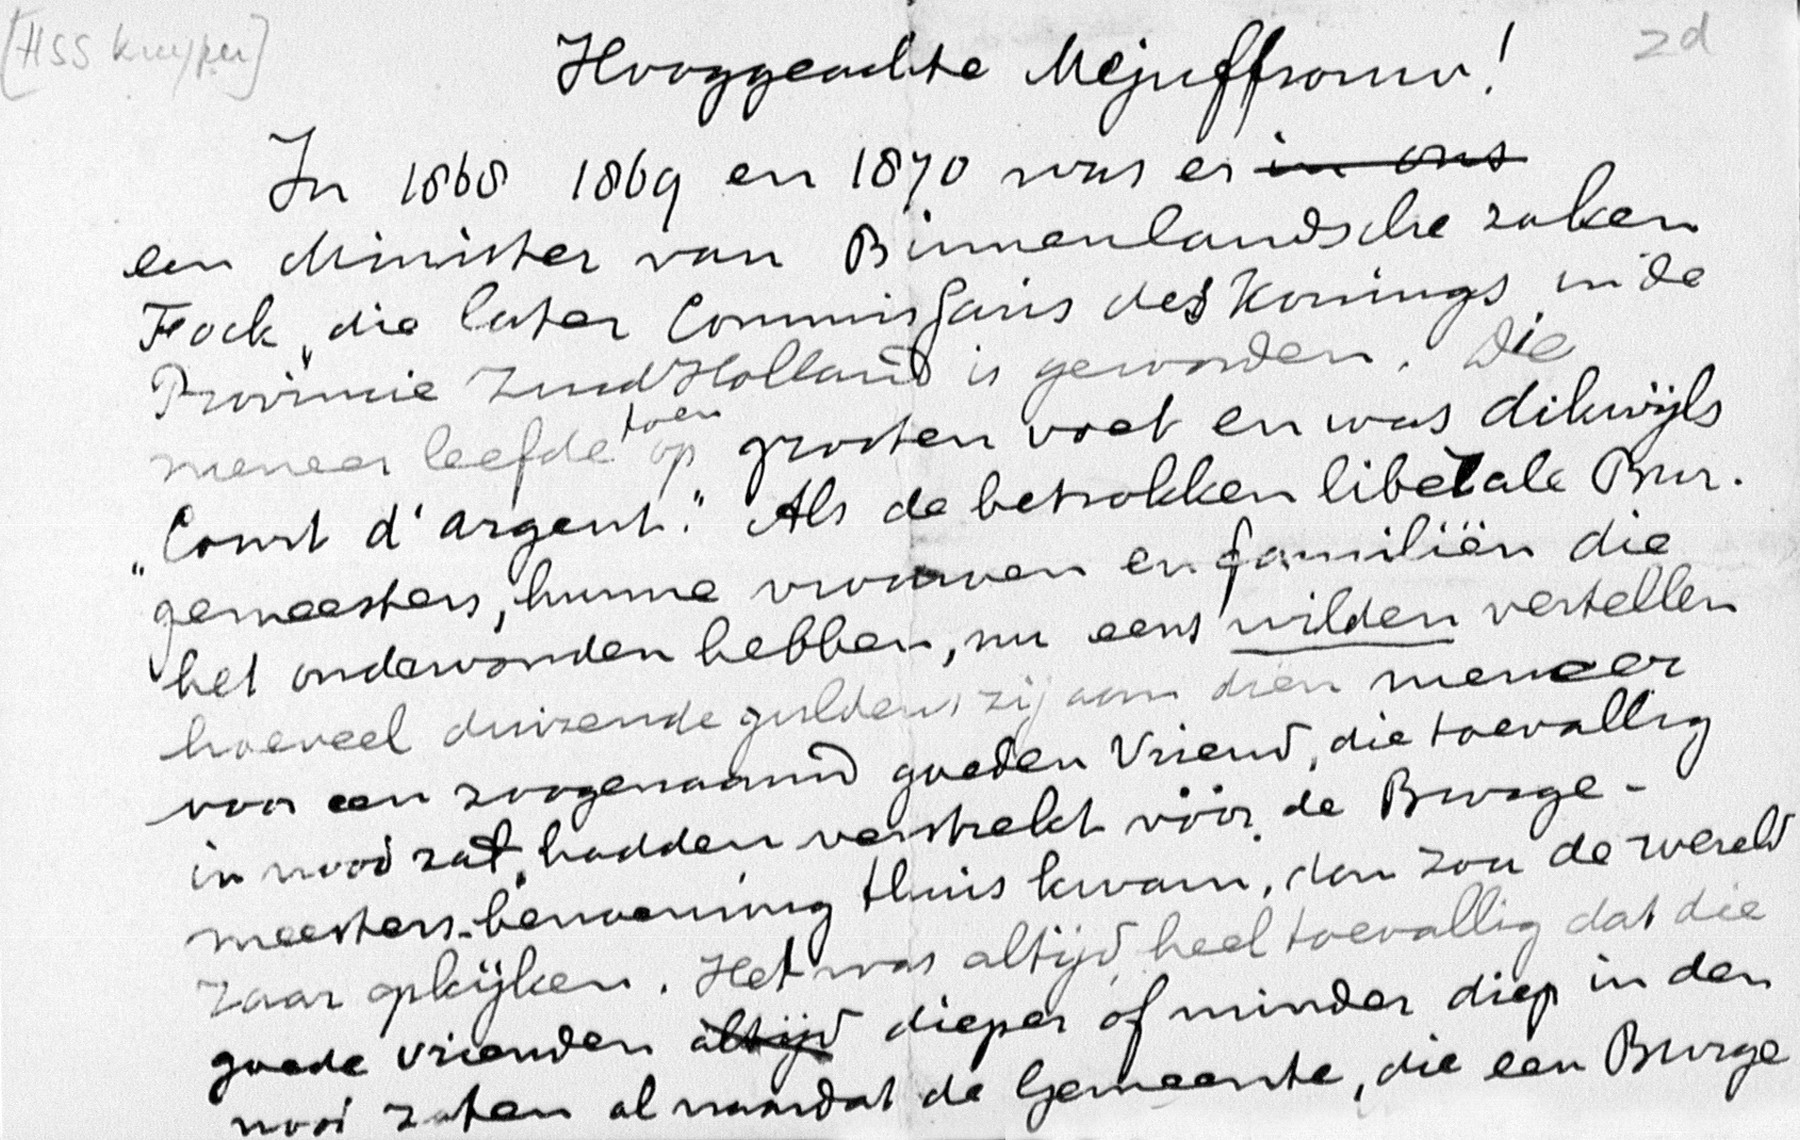 [HSS Kuyper]
2d
Hooggeachte Mejuffrouw!
In 1868 1869 en 1870 was er in ons
een Minister van Binnenlandsche zaken
Fock, die later Commissaris des Konings in de
Provincie Zuid Holland is geworden. Die
meneer leefde toen op grooten voet en was dikwijls
„Court d'argent." Als de betrokken liberale Bur.
gemeesters, hunne vrouwen en familiën die
het ondervonden hebben, nu eens wilden vertellen
hoeveel duizende guldens zij aan dien meneer
voor een zoogenaamd goeden Vriend, die toevallig
in nood zat, hadden verstrekt vóór de Burge-
meesters-benoeming thuis kwam, dan zou de wereld
raar opkijken. Het was altijd heel toevallig dat die
goede vrienden altijd dieper of minder diep in den
nood zaten al naardat de Gemeente, die een Burge